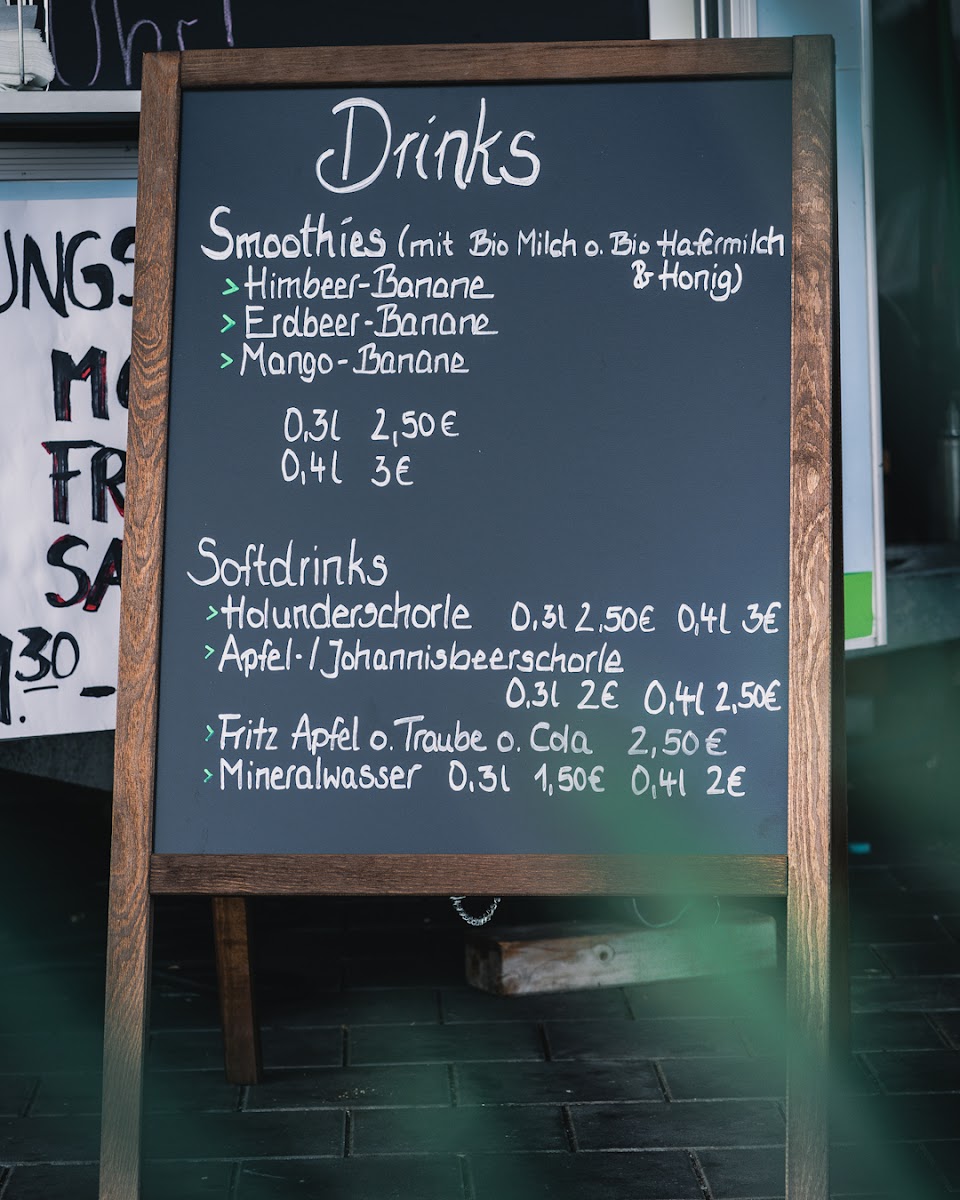 Uhr!
UNGS
MO
FR
SA
30 -
Drinks
Smoothies (mit Bio Milch o. Bio Hafermilch
& Honig)
> Himbeer-Banane
> Erdbeer-Banane
> Mango-Banane
0,3l 2,50€
0,4l 3€
Softdrinks
> Holunderschorle 0,3l 2,50€ 0,4l 3€
> Apfel-/Johannisbeerschorle
0,3l 2€ 0,4l 2,50€
> Fritz Apfel o. Traube o. Cola 2,50€
> Mineralwasser 0,3l 1,50€ 0,4l 2€